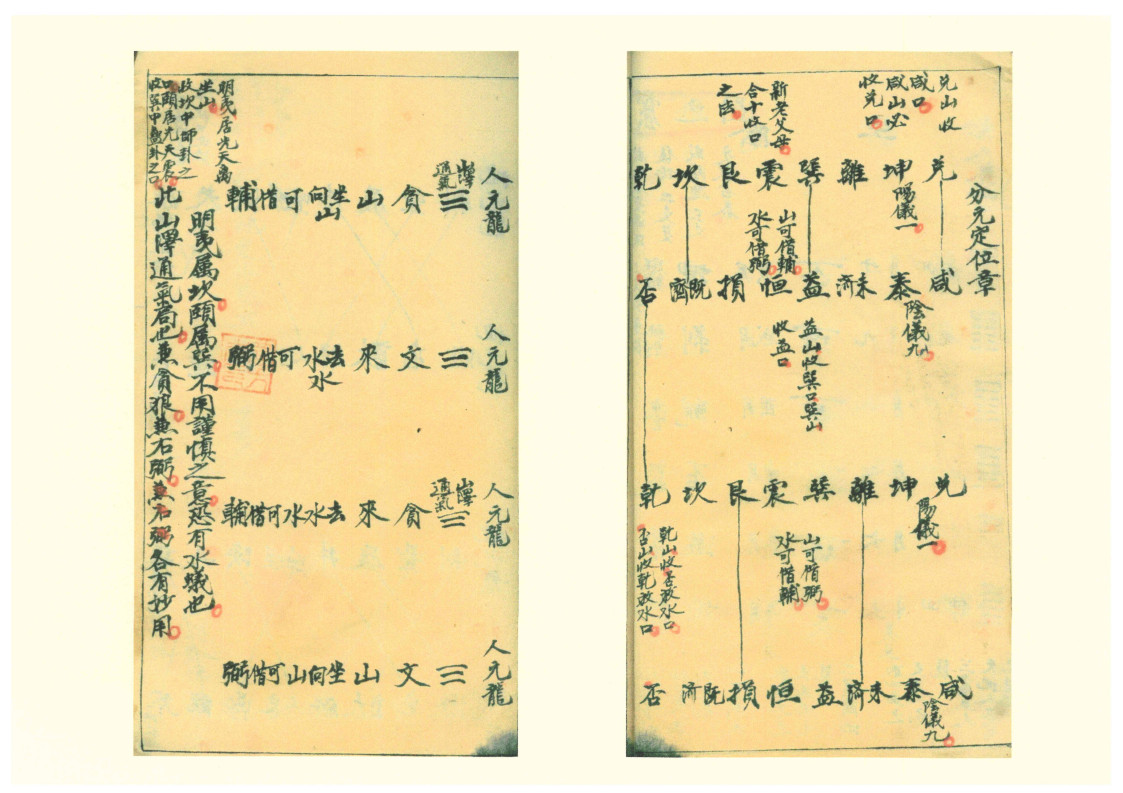 分元定位章
兌山收
咸口
咸山必
收兌口
新老父母
合十收口
之法
兌 坤 離 巽 震 艮 坎 乾
陽儀一
山可借輔
水可借弼
咸 泰 未濟 益 恒 損 既濟 否
陰儀九
益山收巽口巽山
收益口
兌 坤 離 巽 震 艮 坎 乾
陽儀一
山可借弼
水可借輔
乾山收否放水口
否山收乾放水口
咸 泰 未濟 益 恒 損 既濟 否
陰儀九
人元龍
山澤
通氣
三 貪 山 坐山向 可借輔
人元龍
三 文 來 去水水 可借弼
人元龍
山澤
通氣
三 貪 來 去水水 可借輔
人元龍
三 文 山 坐向山 可借弼
明夷居先天离
坐山
收坎中師卦之
口頤居先天震
收巽中蠱卦之口
明夷属坎頤属巽不用謹慎之意恐有水蟻也
此山澤通氣局也兼貪狼兼右弼兼右弼各有妙用